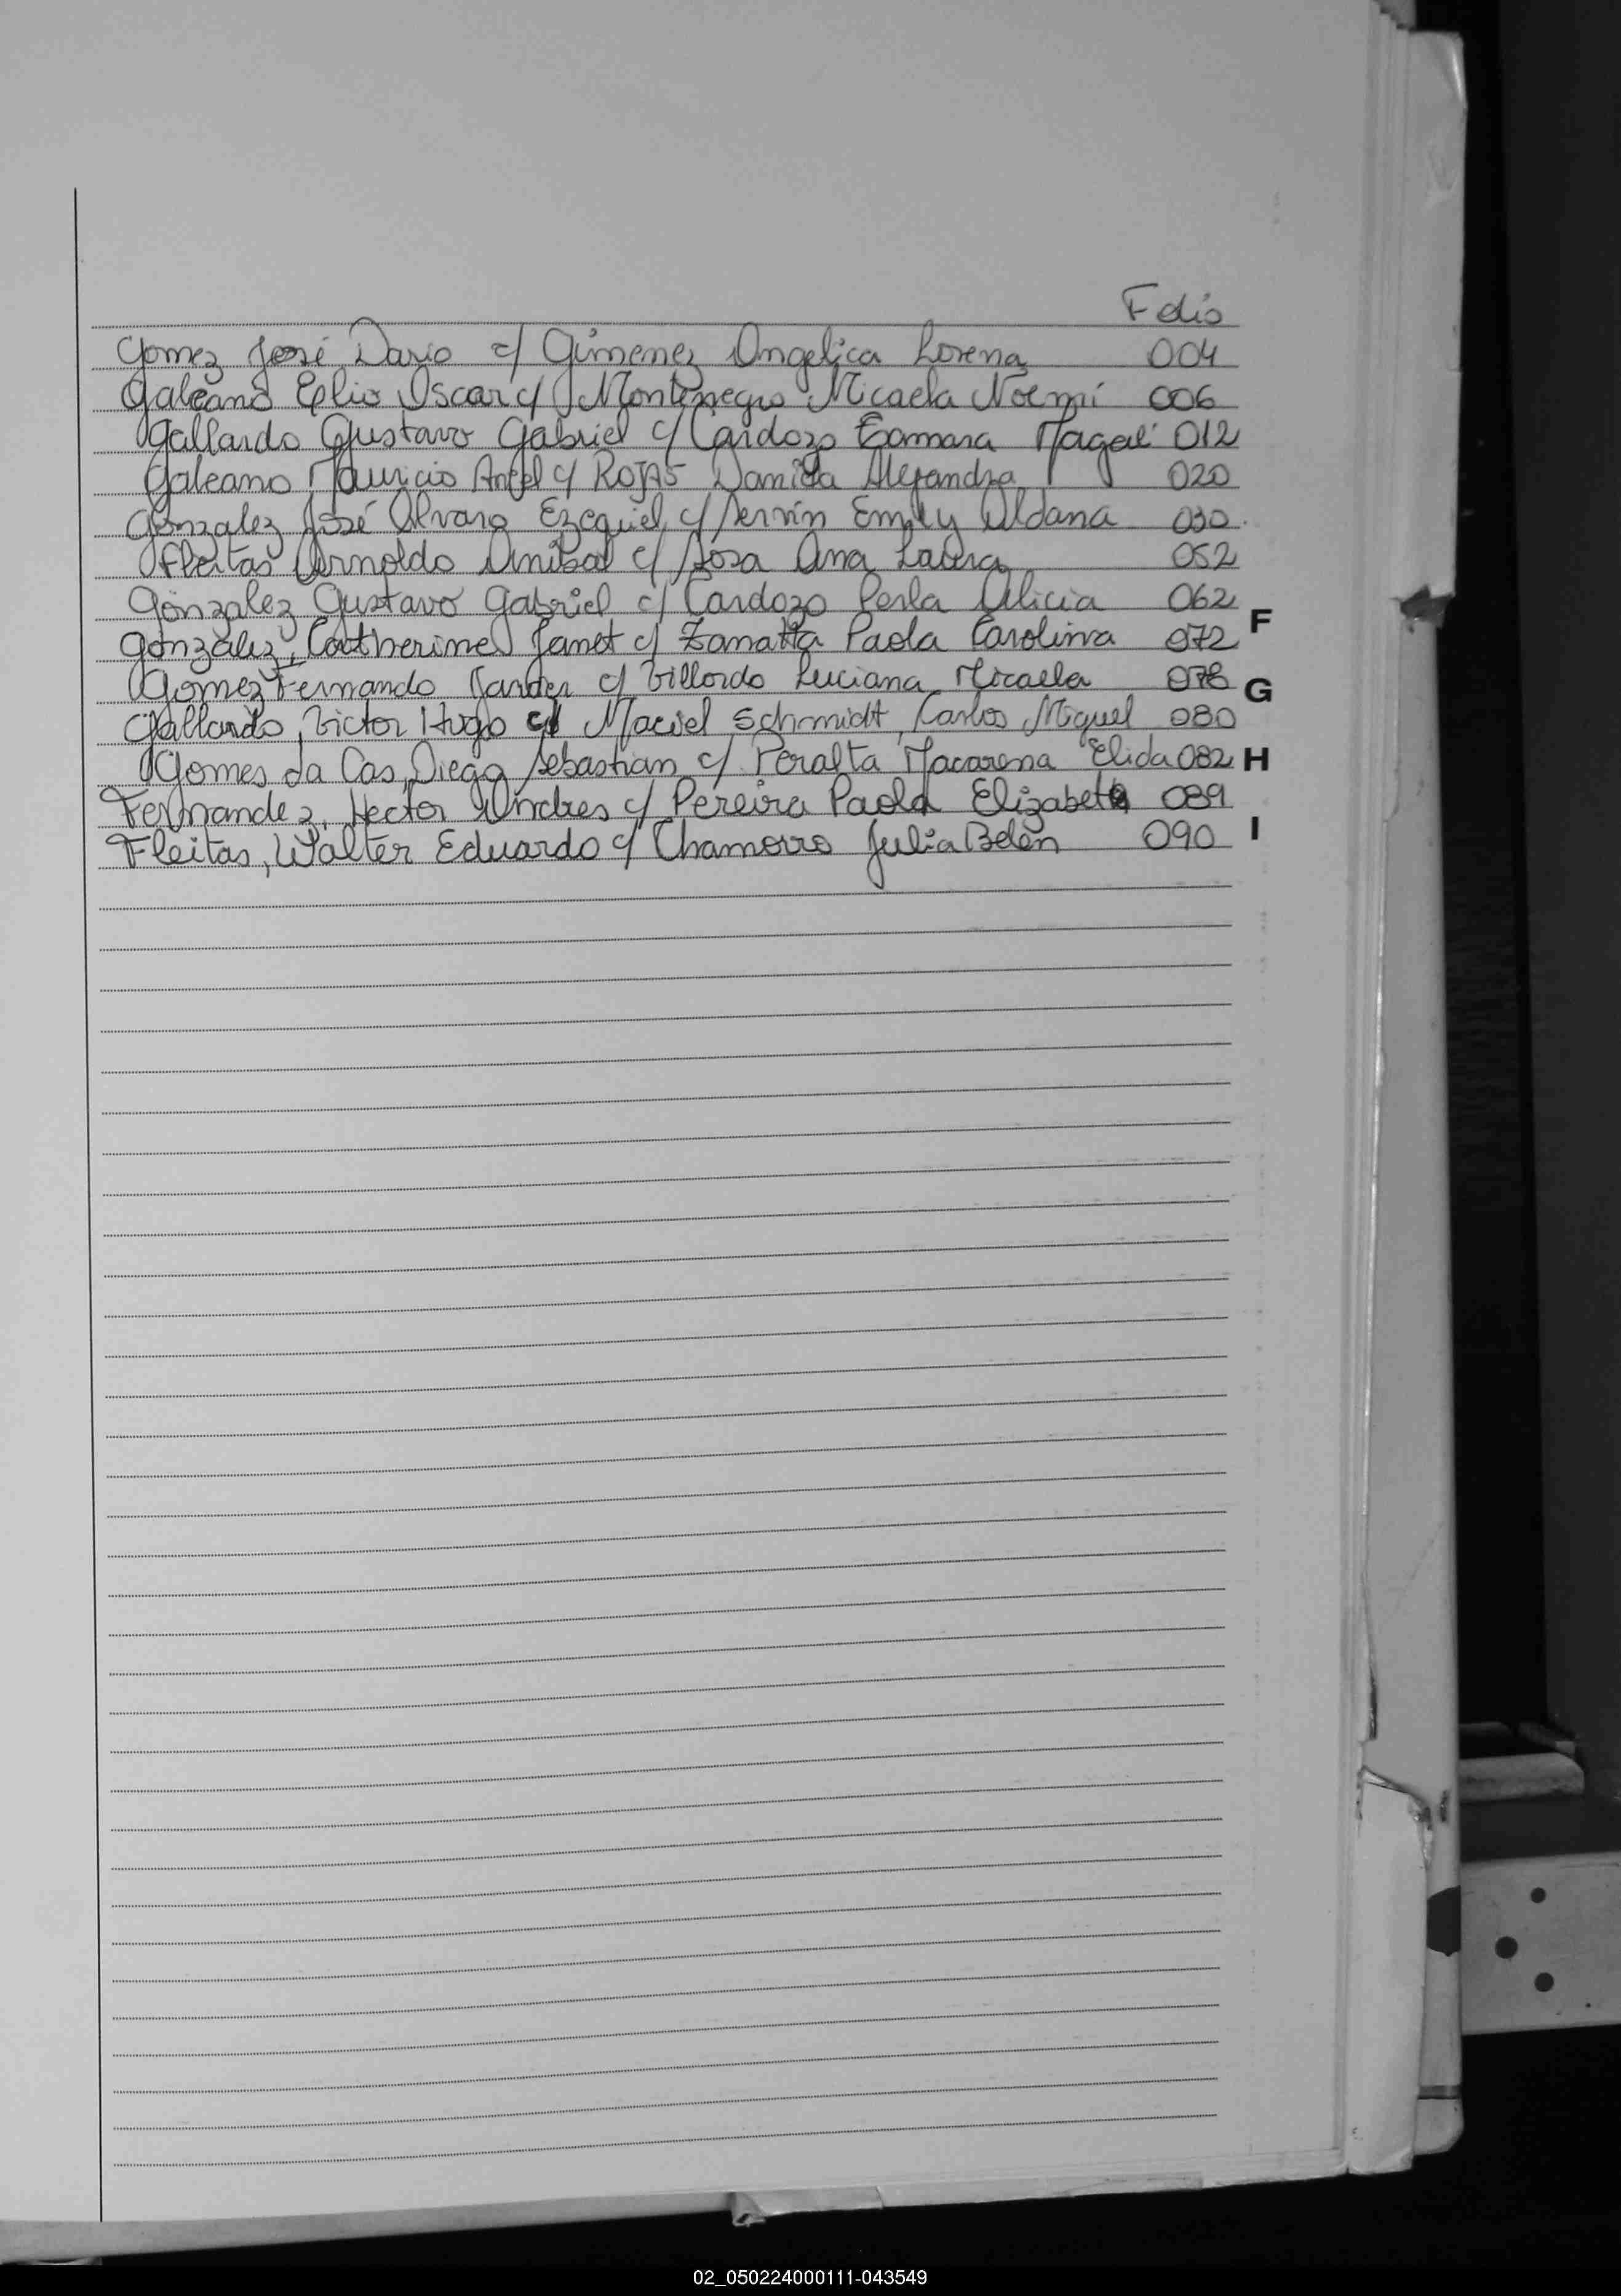 Folio
Gomez José Dario c/ Gimenez Angelica Lorena 004
Galeano Elio Oscar c/ Montenegro Micaela Noemí 006
Gallardo Gustavo Gabriel c/ Cardozo Tamara Magalí 012
Galeano Mauricio Angel c/ ROJAS Daniela Alejandra 020
Gonzalez José Alvaro Ezequiel c/ Servín Emily Aldana 030
Fleitas Arnoldo Anibal c/ Sosa Ana Laura 052
Gonzalez Gustavo Gabriel c/ Cardozo Perla Alicia 062
F
Gonzalez, Catherine Janet c/ Zanatta Paola Carolina 072
Gomez Fernando Javier c/ Villordo Luciana Micaela 078
G
Gallardo, Victor Hugo c/ Maciel Schmidt, Carlos Miguel 080
Gomes da Cas, Diego Sebastian c/ Peralta Macarena Elida 082
H
Fernandez, Hector Andres c/ Pereira Paola 089
Fleitas, Walter Eduardo c/ Chamorro Julia Belén 090
I
02_050224000111-043549